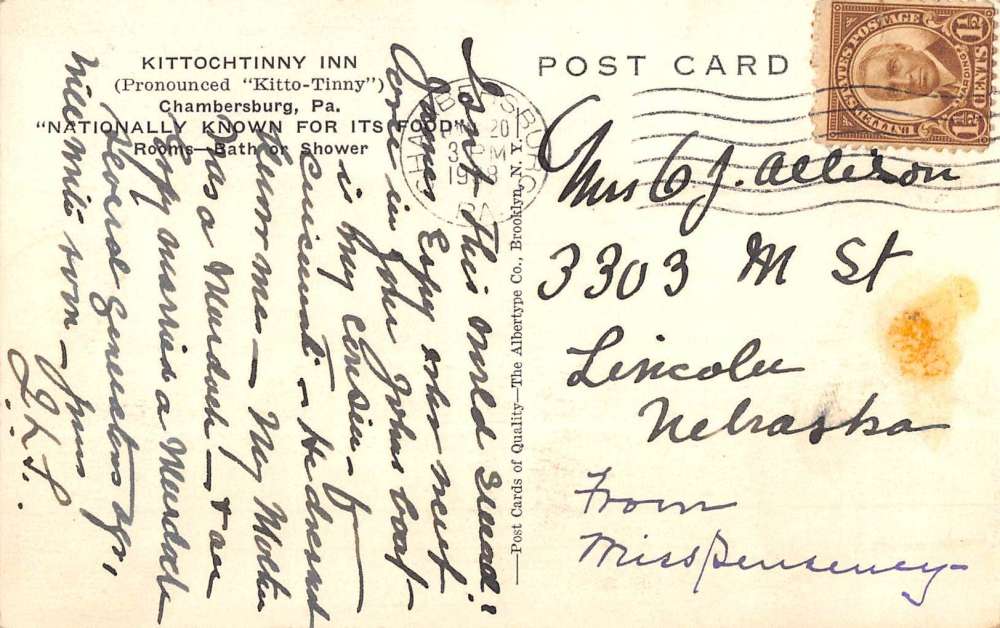 KITTOCHTINNY INN
(Pronounced "Kitto-Tinny")
Chambersburg, Pa.
"NATIONALLY KNOWN FOR ITS FOOD"
Rooms—Bath or Shower
Isn't this world small?
James Espy who next
in John
is my cousin - 
Cincinnati - He
me - My Mother
was a Murdock - & an
Espy married a Murdock
several generations ago,
Will write soon -
—Post Cards of Quality—The Albertype Co., Brooklyn, N. Y.
POST CARD
CHAMBERSBURG
20
3 PM
PA.
UNITED STATES POSTAGE
1½ CENTS 1½
Mrs C J. Allison
3303 M St
Lincoln
Nebraska
From
Miss